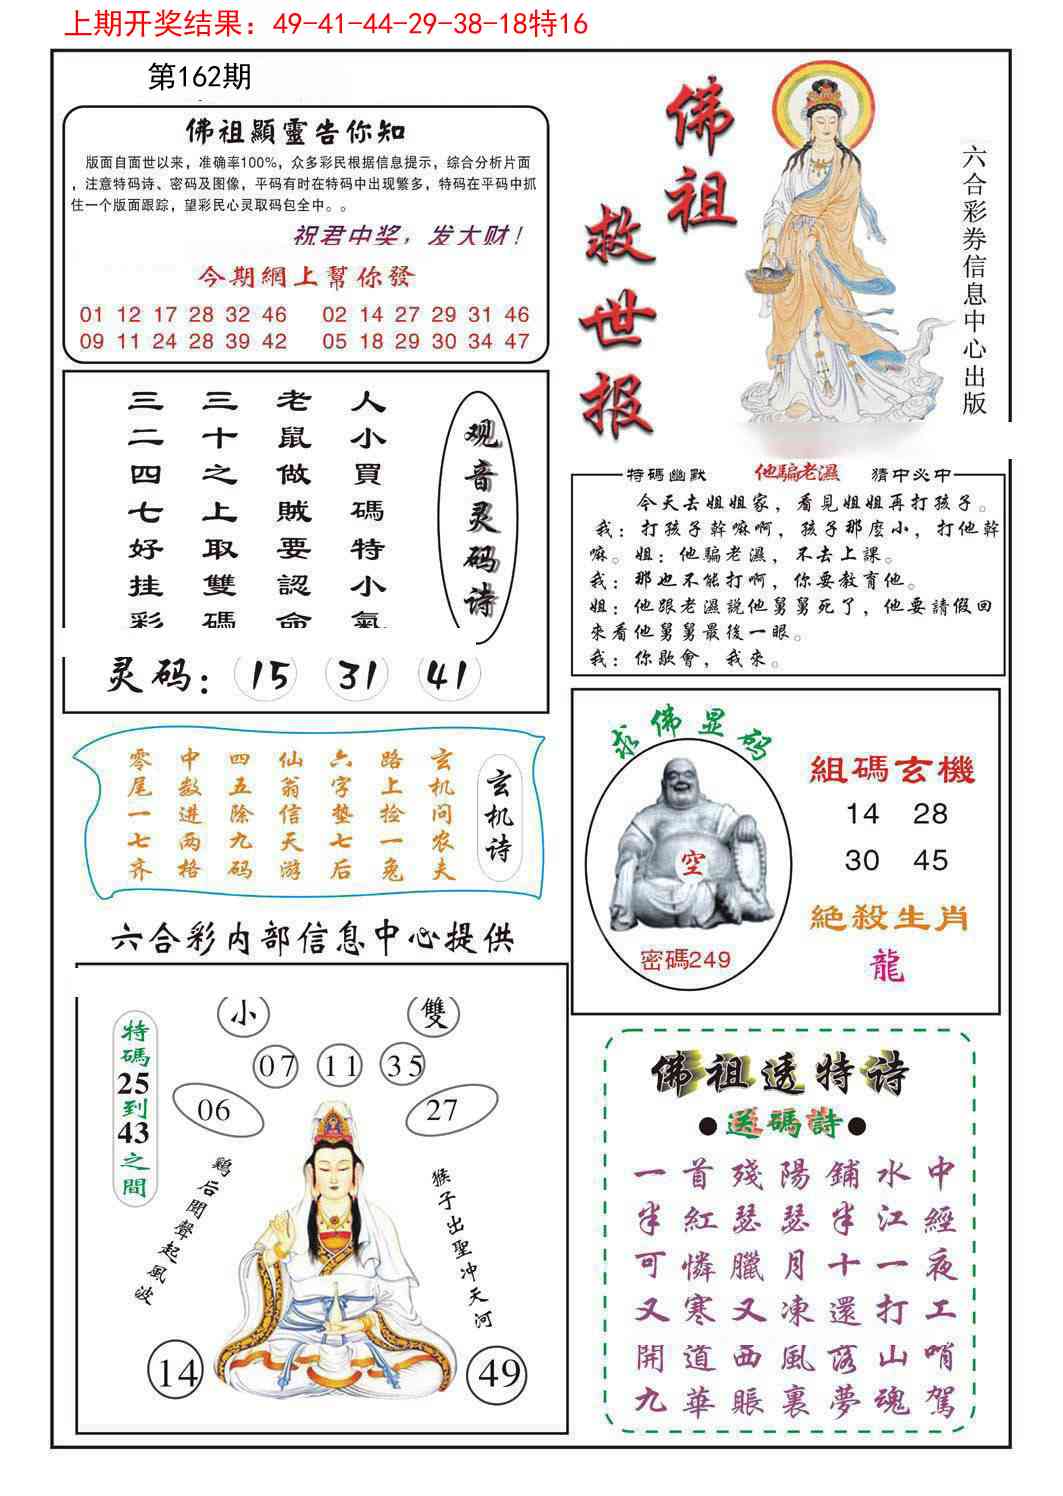 上期开奖结果：49-41-44-29-38-18特16
第162期
佛祖顯靈告你知
版面自面世以来，准确率100%，众多彩民根据信息提示，综合分析片面
，注意特码诗、密码及图像，平码有时在特码中出现繁多，特码在平码中抓
住一个版面跟踪，望彩民心灵取码包全中。。
祝君中奖，发大财！
今期網上幫你發
01 12 17 28 32 46 02 14 27 29 31 46
09 11 24 28 39 42 05 18 29 30 34 47
佛祖
救世报
六合彩券信息中心出版
人小買碼特小氣
老鼠做贼要認命
三十之上取雙碼
三二四七好挂彩
观音灵码诗
灵码： 15 31 41
特碼幽默 他騙老濕 猜中必中
今天去姐姐家，看見姐姐再打孩子。
我：打孩子幹嘛啊，孩子那麼小，打他幹
嘛。姐：他騙老濕，不去上課。
我：那也不能打啊，你要教育他。
姐：他跟老濕說他舅舅死了，他要請假回
來看他舅舅最後一眼。
我：你歇會，我來。
玄机诗
玄机问农夫
路上捡一兔
六字垫七后
仙翁信天游
四五除九码
中数进两格
零尾一七齐
六合彩内部信息中心提供
求佛显码
空
密碼249
組碼玄機
14 28
30 45
絕殺生肖
龍
特碼25到43之間
小 雙
07 11 35
06 27
鷄后聞聲起風波
猴子出聖冲天河
14 49
佛祖透特诗
●送碼詩●
一首殘陽鋪水中
半紅瑟瑟半江經
可憐臘月十一夜
又寒又凍還打工
開道西風落山哨
九華賬裏夢魂駕